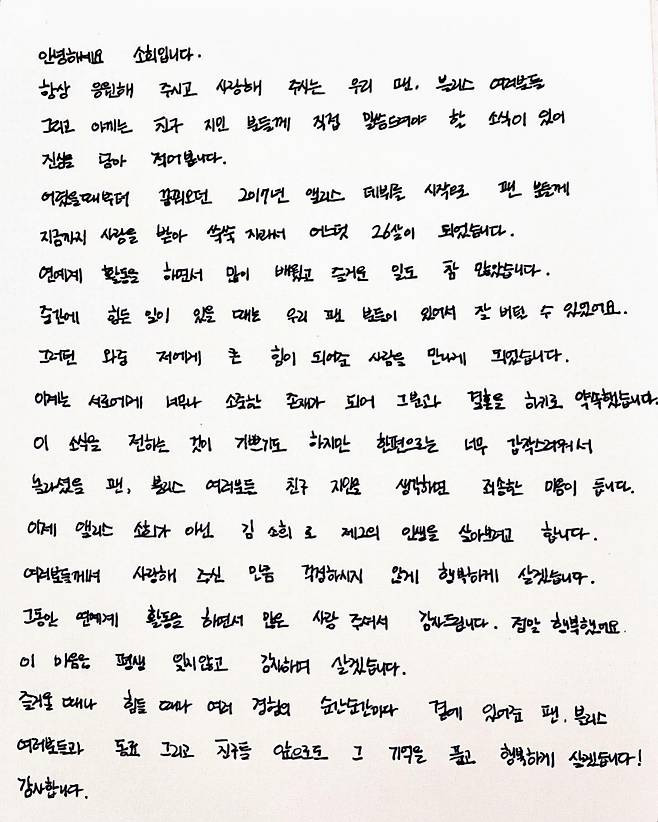 안녕하세요 소희입니다.
항상 응원해 주시고 사랑해 주시는 우리 팬, 블리스 여러분들
그리고 아끼는 친구 지인 분들께 직접 말씀드려야 할 소식이 있어
진심을 담아 적어봅니다.
어렸을때부터 꿈꿔오던 2017년 앨리스 데뷔를 시작으로 팬 분들께
지금까지 사랑을 받아 쑥쑥 자라서 어느덧 26살이 되었습니다.
연예계 활동을 하면서 많이 배웠고 즐거운 일도 참 많았습니다.
중간에 힘든 일이 있을 때는 우리 팬 분들이 있어서 잘 버틸 수 있었어요.
그러던 와중 저에게 큰 힘이 되어준 사람을 만나게 되었습니다.
이제는 서로에게 너무나 소중한 존재가 되어 그분과 결혼을 하기로 약속했습니다.
이 소식을 전하는 것이 기쁘기도 하지만 한편으로는 너무 갑작스러워서
놀라셨을 팬, 블리스 여러분들 친구 지인분 생각하면 죄송한 마음이 듭니다.
이제 앨리스 소희가 아닌 김 소희 로 제2의 인생을 살아보려고 합니다.
여러분들께서 사랑해 주신 만큼 걱정하시지 않게 행복하게 살겠습니다.
그동안 연예계 활동을 하면서 많은 사랑 주셔서 감사드립니다. 정말 행복했어요
이 마음은 평생 잊지않고 감사하며 살겠습니다.
즐거울 때나 힘들 때나 여러 경험의 순간순간마다 곁에 있어준 팬, 블리스
여러분들과 동료 그리고 친구들 앞으로도 그 기억을 품고 행복하게 살겠습니다!
감사합니다.